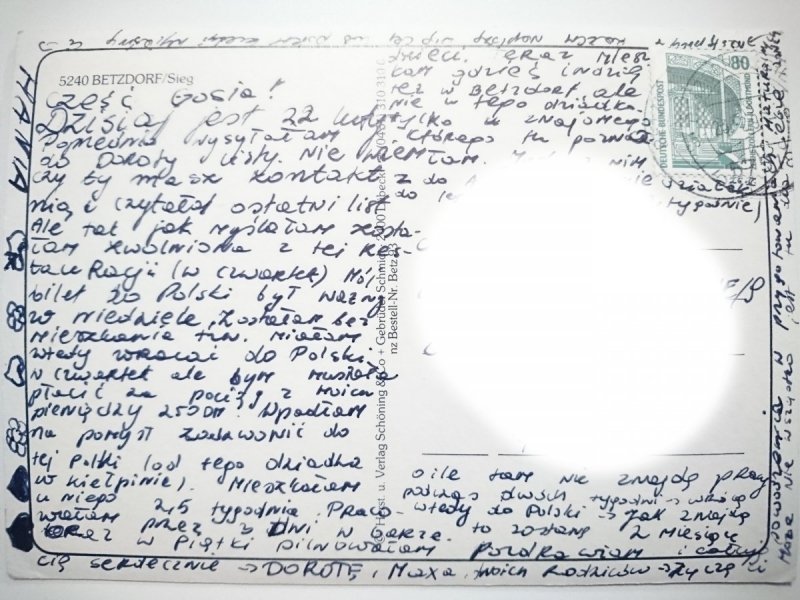 5240 BETZDORF/Sieg
CZEŚĆ Gosia!
DZISIAJ jest 22 luty
Ponownie wysyłam
do Doroty listy. Nie wiem
czy ty masz kontakt
z nią i czytałaś ostatni list
Ale tak jak myślałam zosta-
łam zwolniona z tej res-
tauracji (w czwartek) Mój
bilet do Polski był ważny
w niedzielę. Zostałam bez
mieszkania tzn. miałam
wtedy wracać do Polski
w czwartek ale bym musiała
płacić za pociąg z moich
pieniędzy 250 DM. Wpadłam
na pomysł zadzwonić do
tej Polki (od tego dziadka
w Kiełpinie). Mieszkałam
u niego 2,5 tygodnia. Praco-
wałam przez 3 DNI w barze.
w piątki pilnowałam
dzieci. Teraz miesz-
kam gdzieś indziej
też w Betzdorf ale
nie u tego dziadka
tylko u znajomego
którego tu
z nim
do
tygodnie)
o ile tam nie znajdę pracy
podczas dwóch tygodni → wrócę
wtedy do Polski → Jak znajdę
to zostanę 2 miesiące
Pozdrawiam i całuję
cię serdecznie → DOROTĘ, Maxa, twoich Rodziców → Życzę ci
powodzenia w przygotowaniach do matury
Może nie wszystko jest tu dla ciebie
HANIA
Horst. u. Verlag Schöning & Co + Gebrüder Schmidt, Lübeck
Bestell-Nr. Betz
DEUTSCHE BUNDESPOST
80